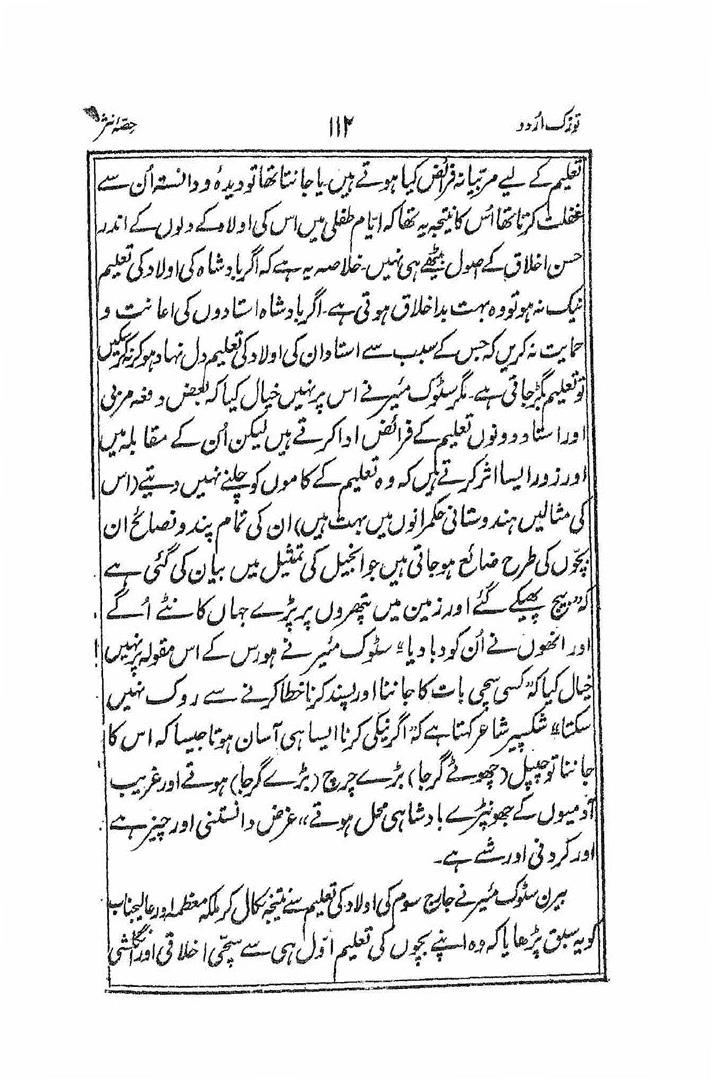 توزک اُردو ۱۱۲ حِصّۂ نثر
تعلیم کے لیے مربّیانہ فرائض کیا ہوتے ہیں۔ یا جانتا تھا تو دیدہ و دانستہ اُن سے
غفلت کرتا تھا اُس کا نتیجہ یہ تھا کہ ایّام طفلی میں اس کی اولاد کے دلوں کے اندر
حسن اخلاق کے اصول بیٹھے ہی نہیں۔ خلاصہ یہ ہے کہ اگر بادشاہ کی اولاد کی تعلیم
نیک نہ ہو تو وہ بہت بداخلاق ہوتی ہے۔ اگر بادشاہ استادوں کی اعانت و
حمایت نہ کریں کہ جس کے سبب سے استاد ان کی اولاد کی تعلیم دل نہاد ہو کر نہ کر سکیں
تو تعلیم بگڑ جاتی ہے۔ مگر سٹوک مئیر نے اس پر نہیں خیال کیا کہ بعض دفعہ مربی
اور استاد دونوں تعلیم کے فرائض ادا کرتے ہیں لیکن اُن کے مقابلہ میں
اور زور ایسا اثر کرتے ہیں کہ وہ تعلیم کے کاموں کو چلنے نہیں دیتے (اس
کی مثالیں ہندوستانی حکمرانوں میں بہت ہیں) ان کی تمام پند و نصائح ان
بیجوں کی طرح ضائع ہو جاتی ہیں جو انجیل کی تمثیل میں بیان کی گئی ہے
کہ ”بیج پھیکے گئے اور زمین میں پتھروں پر پڑے جہاں کانٹے اُگے
اور انھوں نے اُن کو دبا دیا“ سٹوک مئیر نے ہورس کے اس مقولہ پر نہیں
خیال کیا کہ ”کسی سچی بات کا جاننا اور پسند کرنا خطا کرنے سے روک نہیں
سکتا“ شکسپیر شاعر کہتا ہے کہ ”اگر نیکی کرنا ایسا ہی آسان ہوتا جیسا کہ اس کا
جاننا تو چیپل (چھوٹے گرجا) بڑے چرچ (بڑے گرجا) ہوتے اور غریب
آدمیوں کے جھونپڑے بادشاہی محل ہوتے“ غرض دانستنی اور چیز ہے
اور کردنی اور شے ہے۔
بیرن سٹوک مئیر نے جارج سوم کی اولاد کی تعلیم سے نتیجہ نکال کر ملکہ معظمہ اور عالیجناب
کو یہ سبق پڑھایا کہ وہ اپنے بچوں کی تعلیم اوّل ہی سے سچّی اخلاقی اور انگلشی